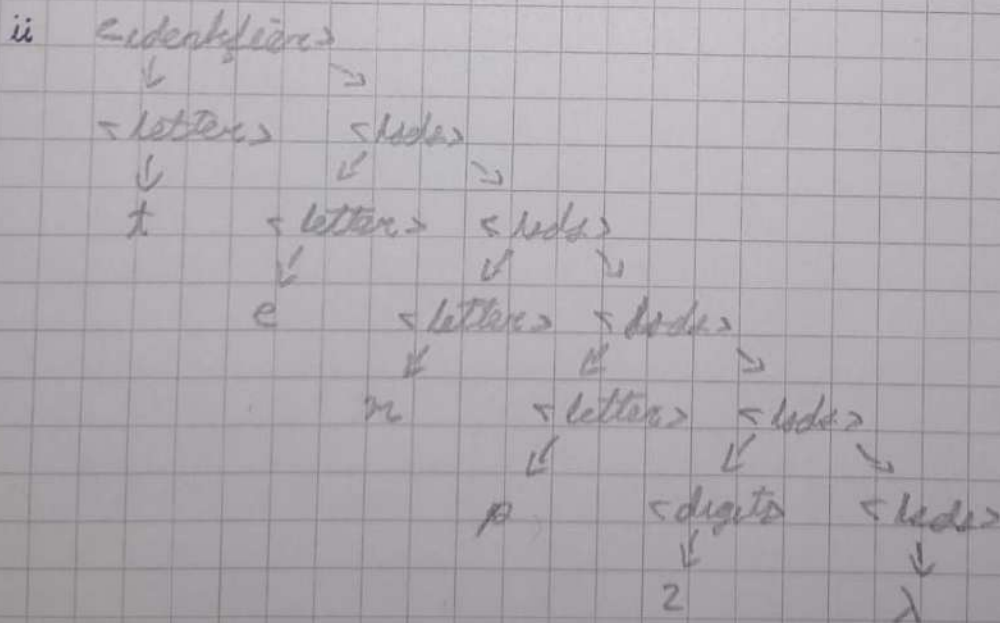 ii <identifier>
<letter> <lsds>
t <letter> <lsds>
e <letter> <lsds>
<letter> <lsds>
p <digit> <lsds>
2 λ